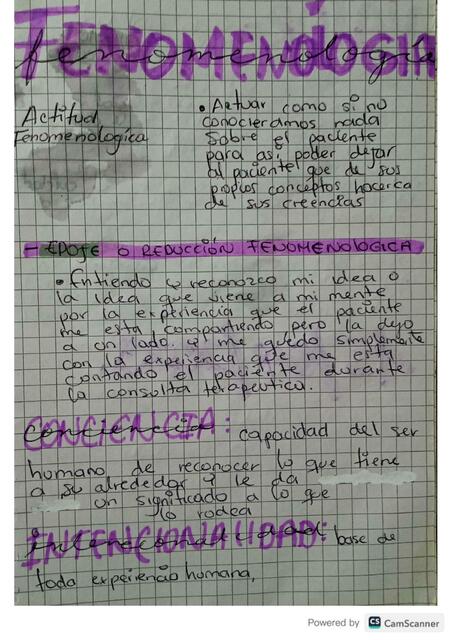 FENOMENOLOGÍA
fenomenología
Actitud
Fenomenologica
• Actuar como si no
conocieramos nada
sobre el paciente
para asi poder dejar
al paciente que de sus
propios conceptos hacerca
de sus creencias
- EPOJE O REDUCCIÓN FENOMENOLOGICA
• Entiendo y reconozco mi idea o
la idea que viene a mi mente
por la experiencia que el paciente
me esta compartiendo pero la dejo
a un lado. y me quedo simplemente
con la experiencia que me esta
contando el paciente durante
la consulta terapeutica.
CONCIENCIA: capacidad del ser
humano de reconocer lo que tiene
a su alrededor y le da
un significado a lo que
lo rodea
INTENCIONALIDAD: base de
toda experiencia humana,
Powered by CS CamScanner